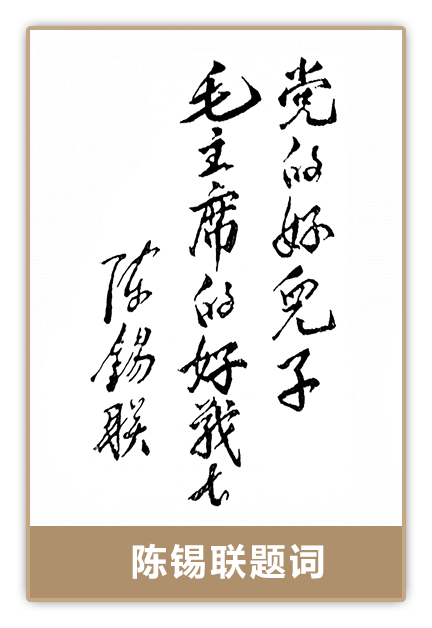 党的好兒子
毛主席的好战士
陈锡联
陈锡联题词